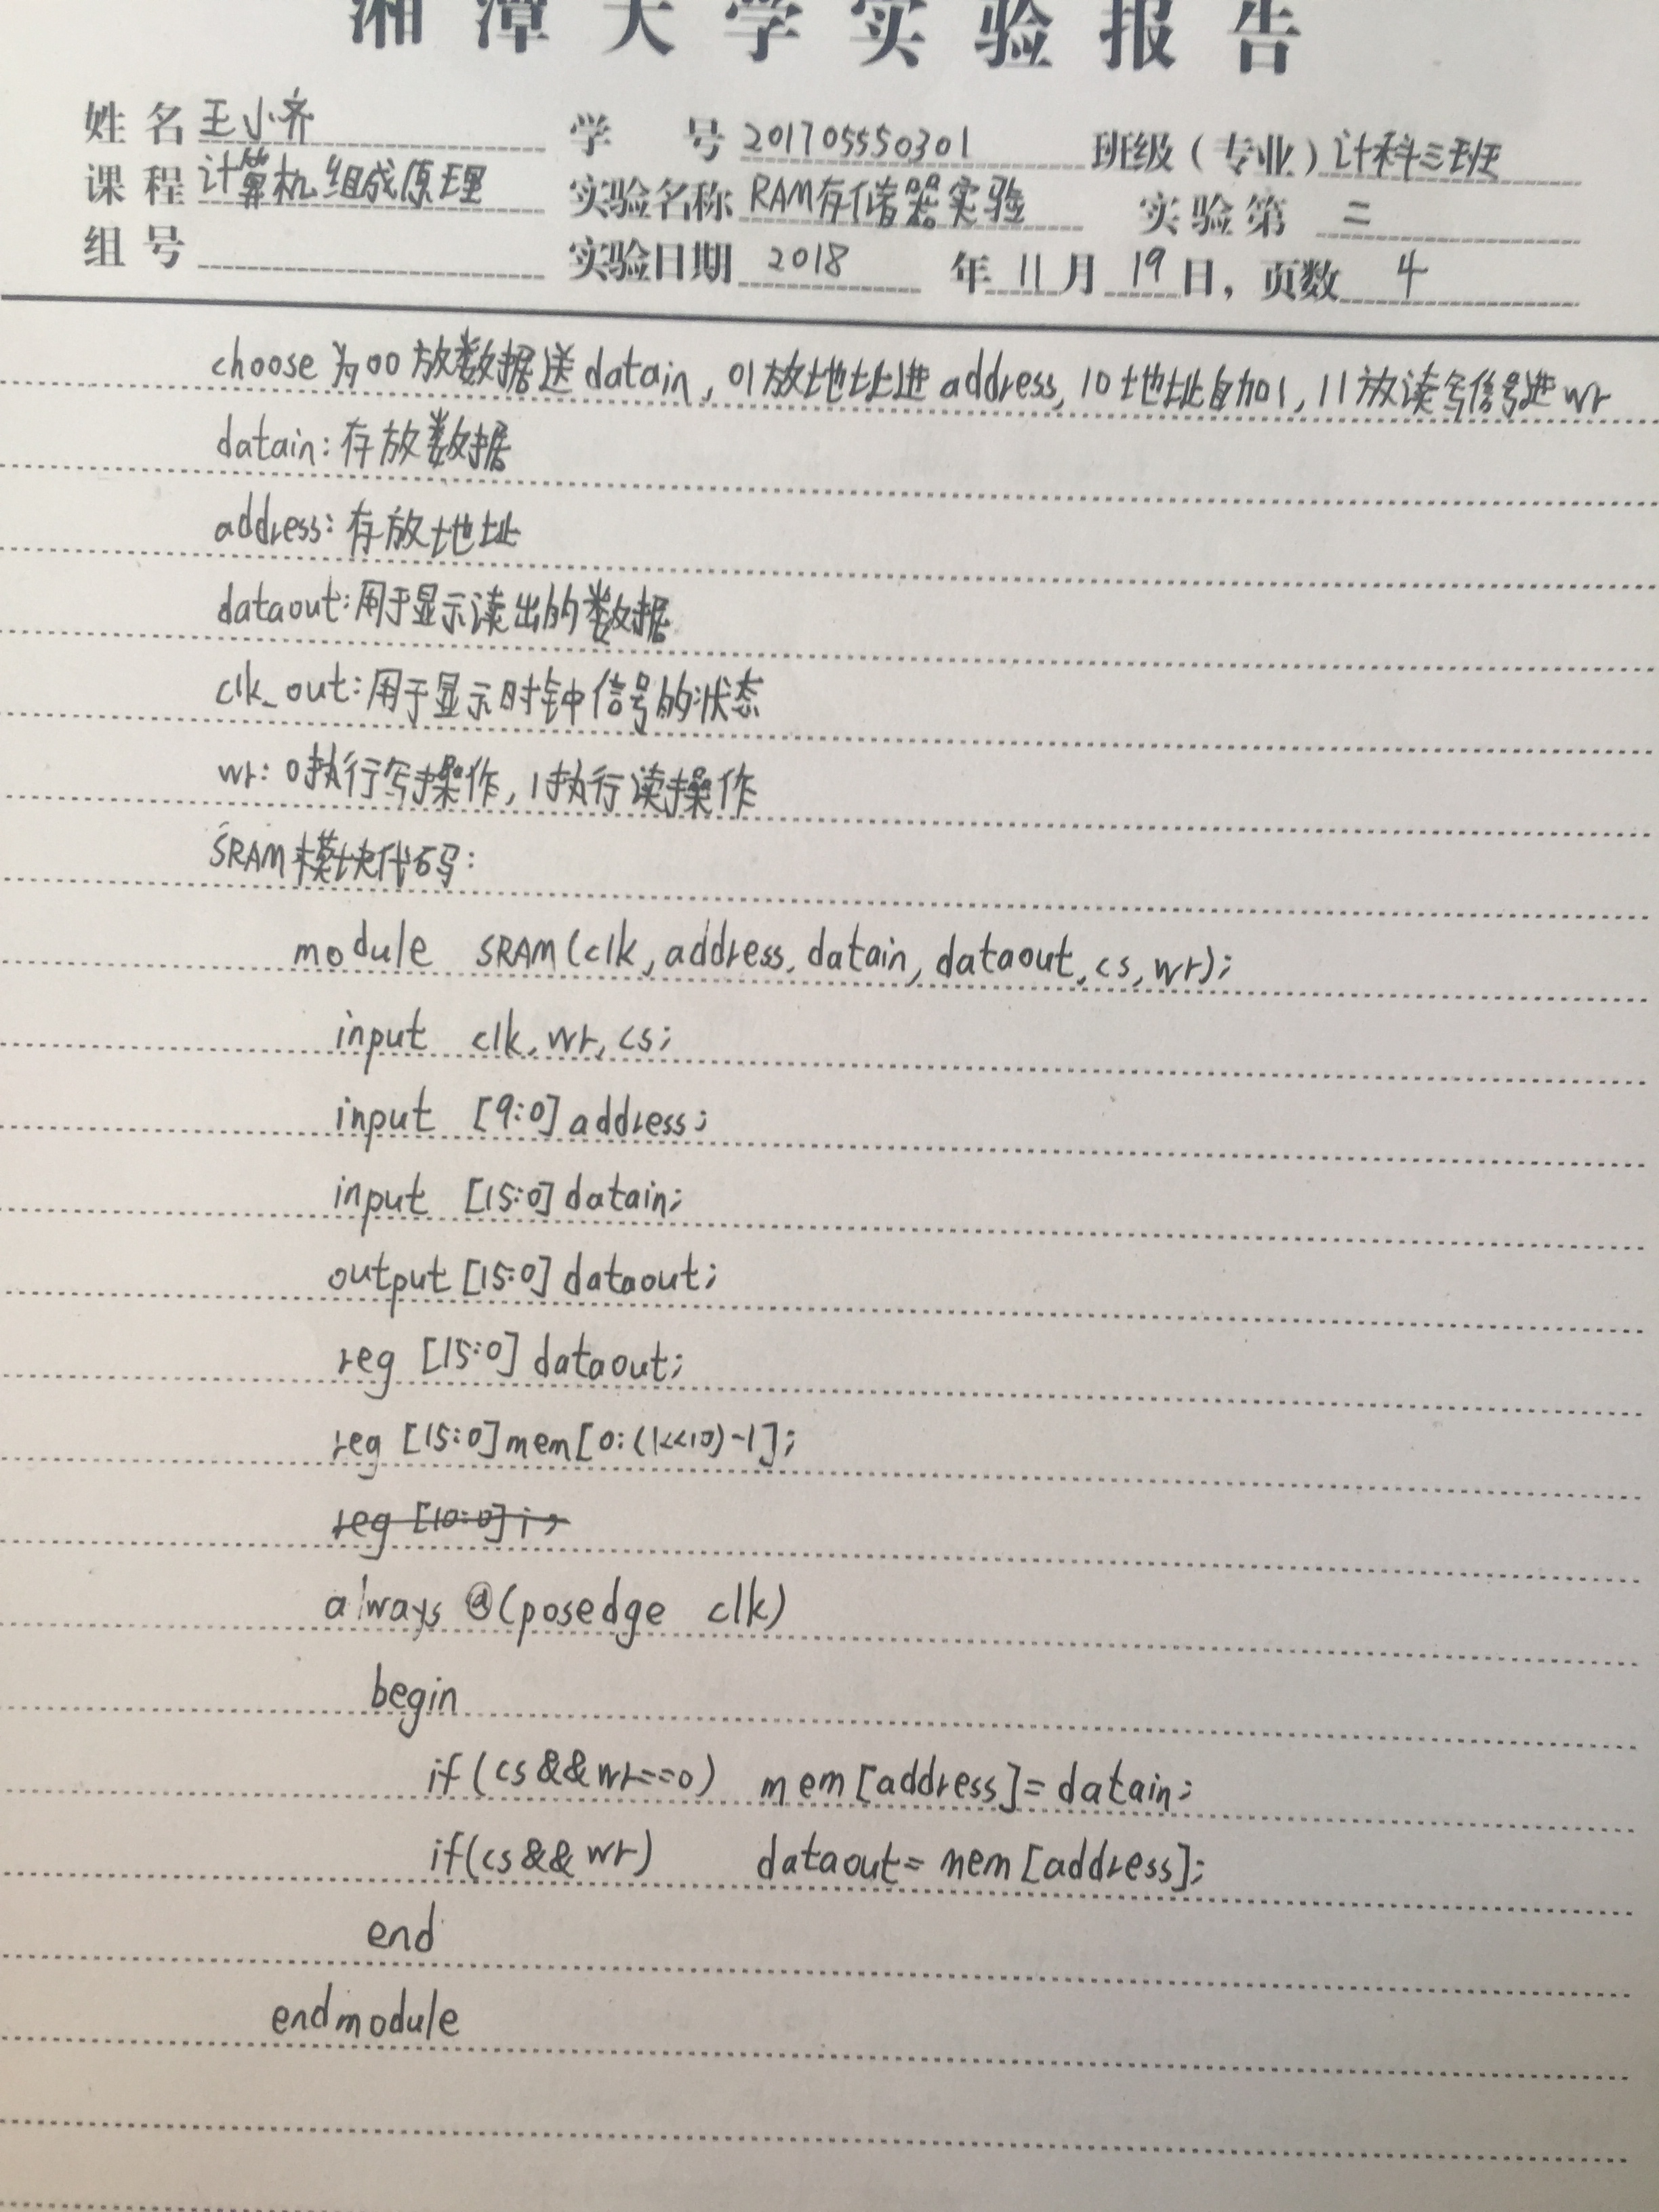 湘潭大学实验报告
姓名 王小齐 学号 201705550301 班级（专业）计科三班
课程 计算机组成原理 实验名称 RAM存储器实验 实验第 二
组号 实验日期 2018 年 11 月 19 日，页数 4
choose为00放数据送datain，01放地址进address，10地址自加1，11放读写信号进wr
datain：存放数据
address：存放地址
dataout：用于显示读出的数据
clk_out：用于显示时钟信号的状态
wr：0执行写操作，1执行读操作
SRAM模块代码：
module SRAM(clk,address,datain,dataout,cs,wr);
input clk,wr,cs;
input [9:0] address;
input [15:0] datain;
output [15:0] dataout;
reg [15:0] dataout;
reg [15:0] mem[0:(1<<10)-1];
reg [10:0] i;
always @(posedge clk)
begin
if(cs&&wr==0) mem[address]=datain;
if(cs&&wr) dataout=mem[address];
end
endmodule